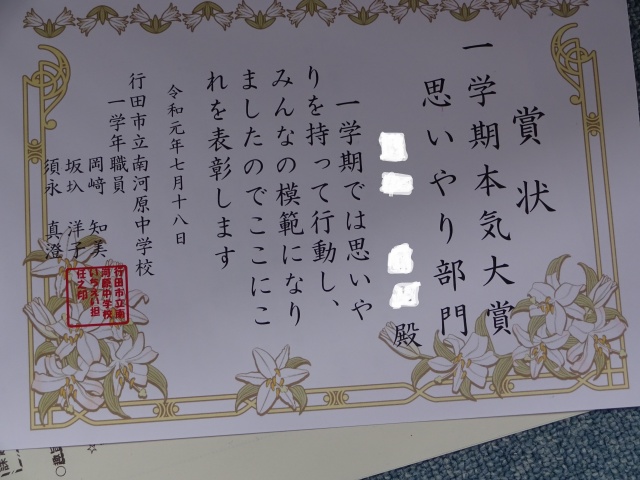 賞状
一学期本気大賞
思いやり部門
殿
一学期では思いや
りを持って行動し、
みんなの模範になり
ましたのでここにこ
れを表彰します
令和元年七月十八日
行田市立南河原中学校
一学年職員
岡﨑 知美
坂圦 洋子
須永 真澄
行田市立南
河原中学校